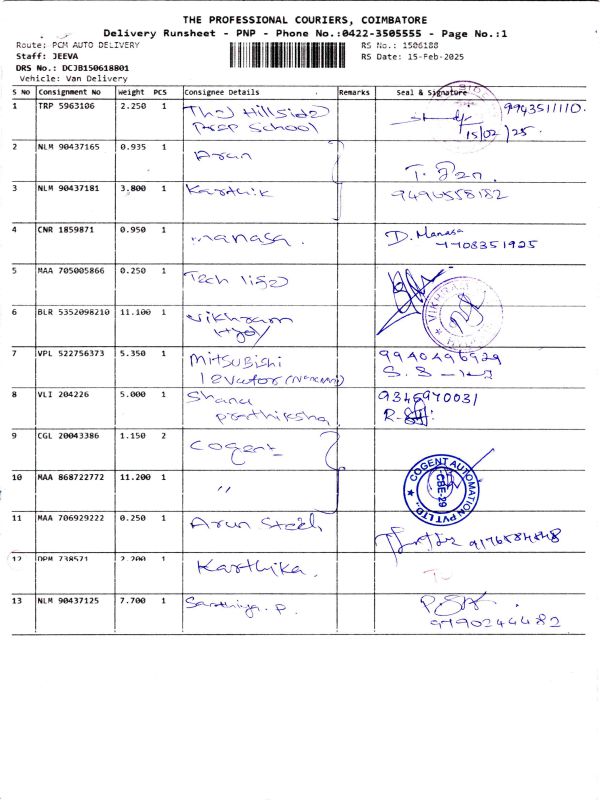 THE PROFESSIONAL COURIERS, COIMBATORE
Delivery Runsheet - PNP - Phone No.:0422-3505555 - Page No.:1
Route: PCM AUTO DELIVERY RS No.: 1506188
Staff: JEEVA RS Date: 15-Feb-2025
DRS No.: DCJB150618801
Vehicle: Van Delivery
S No Consignment No Weight PCS Consignee Details Remarks Seal & Signature
1 TRP 5963106 2.250 1 The Hillside 9943511110.
Prep School 15/02/25.
2 NLM 90437165 0.935 1 Arun
3 NLM 90437181 3.800 1 Karthik 9496558182
4 CNR 1859871 0.950 1 manasa. D. Manasa
7708351925
5 MAA 705005866 0.250 1 Tech
6 BLR 5352098210 11.100 1 Vikhram
7 VPL 522756373 5.350 1 Mitsubishi 9940496929
levator
8 VLI 204226 5.000 1 Shana 9345970031
prathiksha
9 CGL 20043386 1.150 2 Cogent
COGENT AUTOMATION PVT LTD
CBE-29
10 MAA 868722772 11.200 1 "
11 MAA 706929222 0.250 1 Arun Steels 9176584848
12 DPM 738571 2.200 1 Karthika.
13 NLM 90437125 7.700 1 Santhiya. P.
9790244482